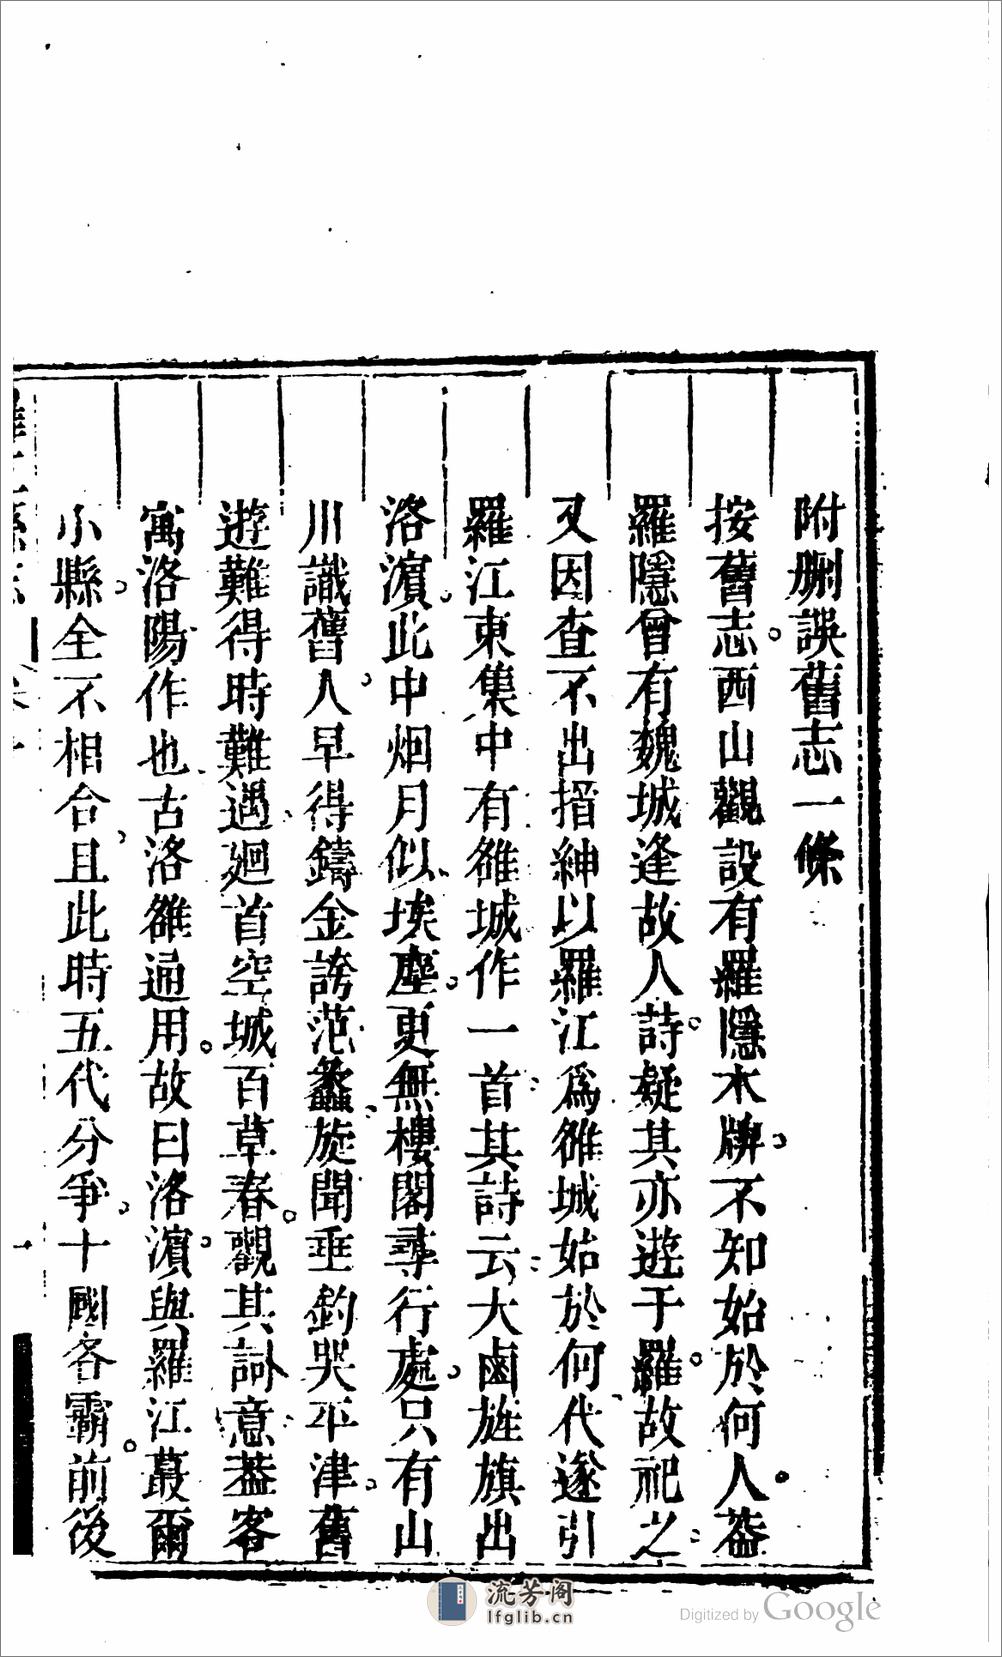 附刪誤舊志一條
按舊志西山觀設有羅隱木牌不知始於何人葢
羅隱曾有魏城逢故人詩疑其亦遊于羅故祀之
又因查不出搢紳以羅江爲雒城始於何代遂引
羅江東集中有雒城作一首其詩云大鹵旌旗出
洛濵此中烟月似埃塵更無樓閣尋行處只有山
川識舊人早得鑄金誇范蠡旋聞垂釣哭平津舊
遊難得時難遇廻首空城百草春觀其詞意葢客
寓洛陽作也古洛雒通用故曰洛濵與羅江蕞爾
小縣全不相合且此時五代分爭十國各霸前後
流芳阁
lfglib.cn
Digitized by Google